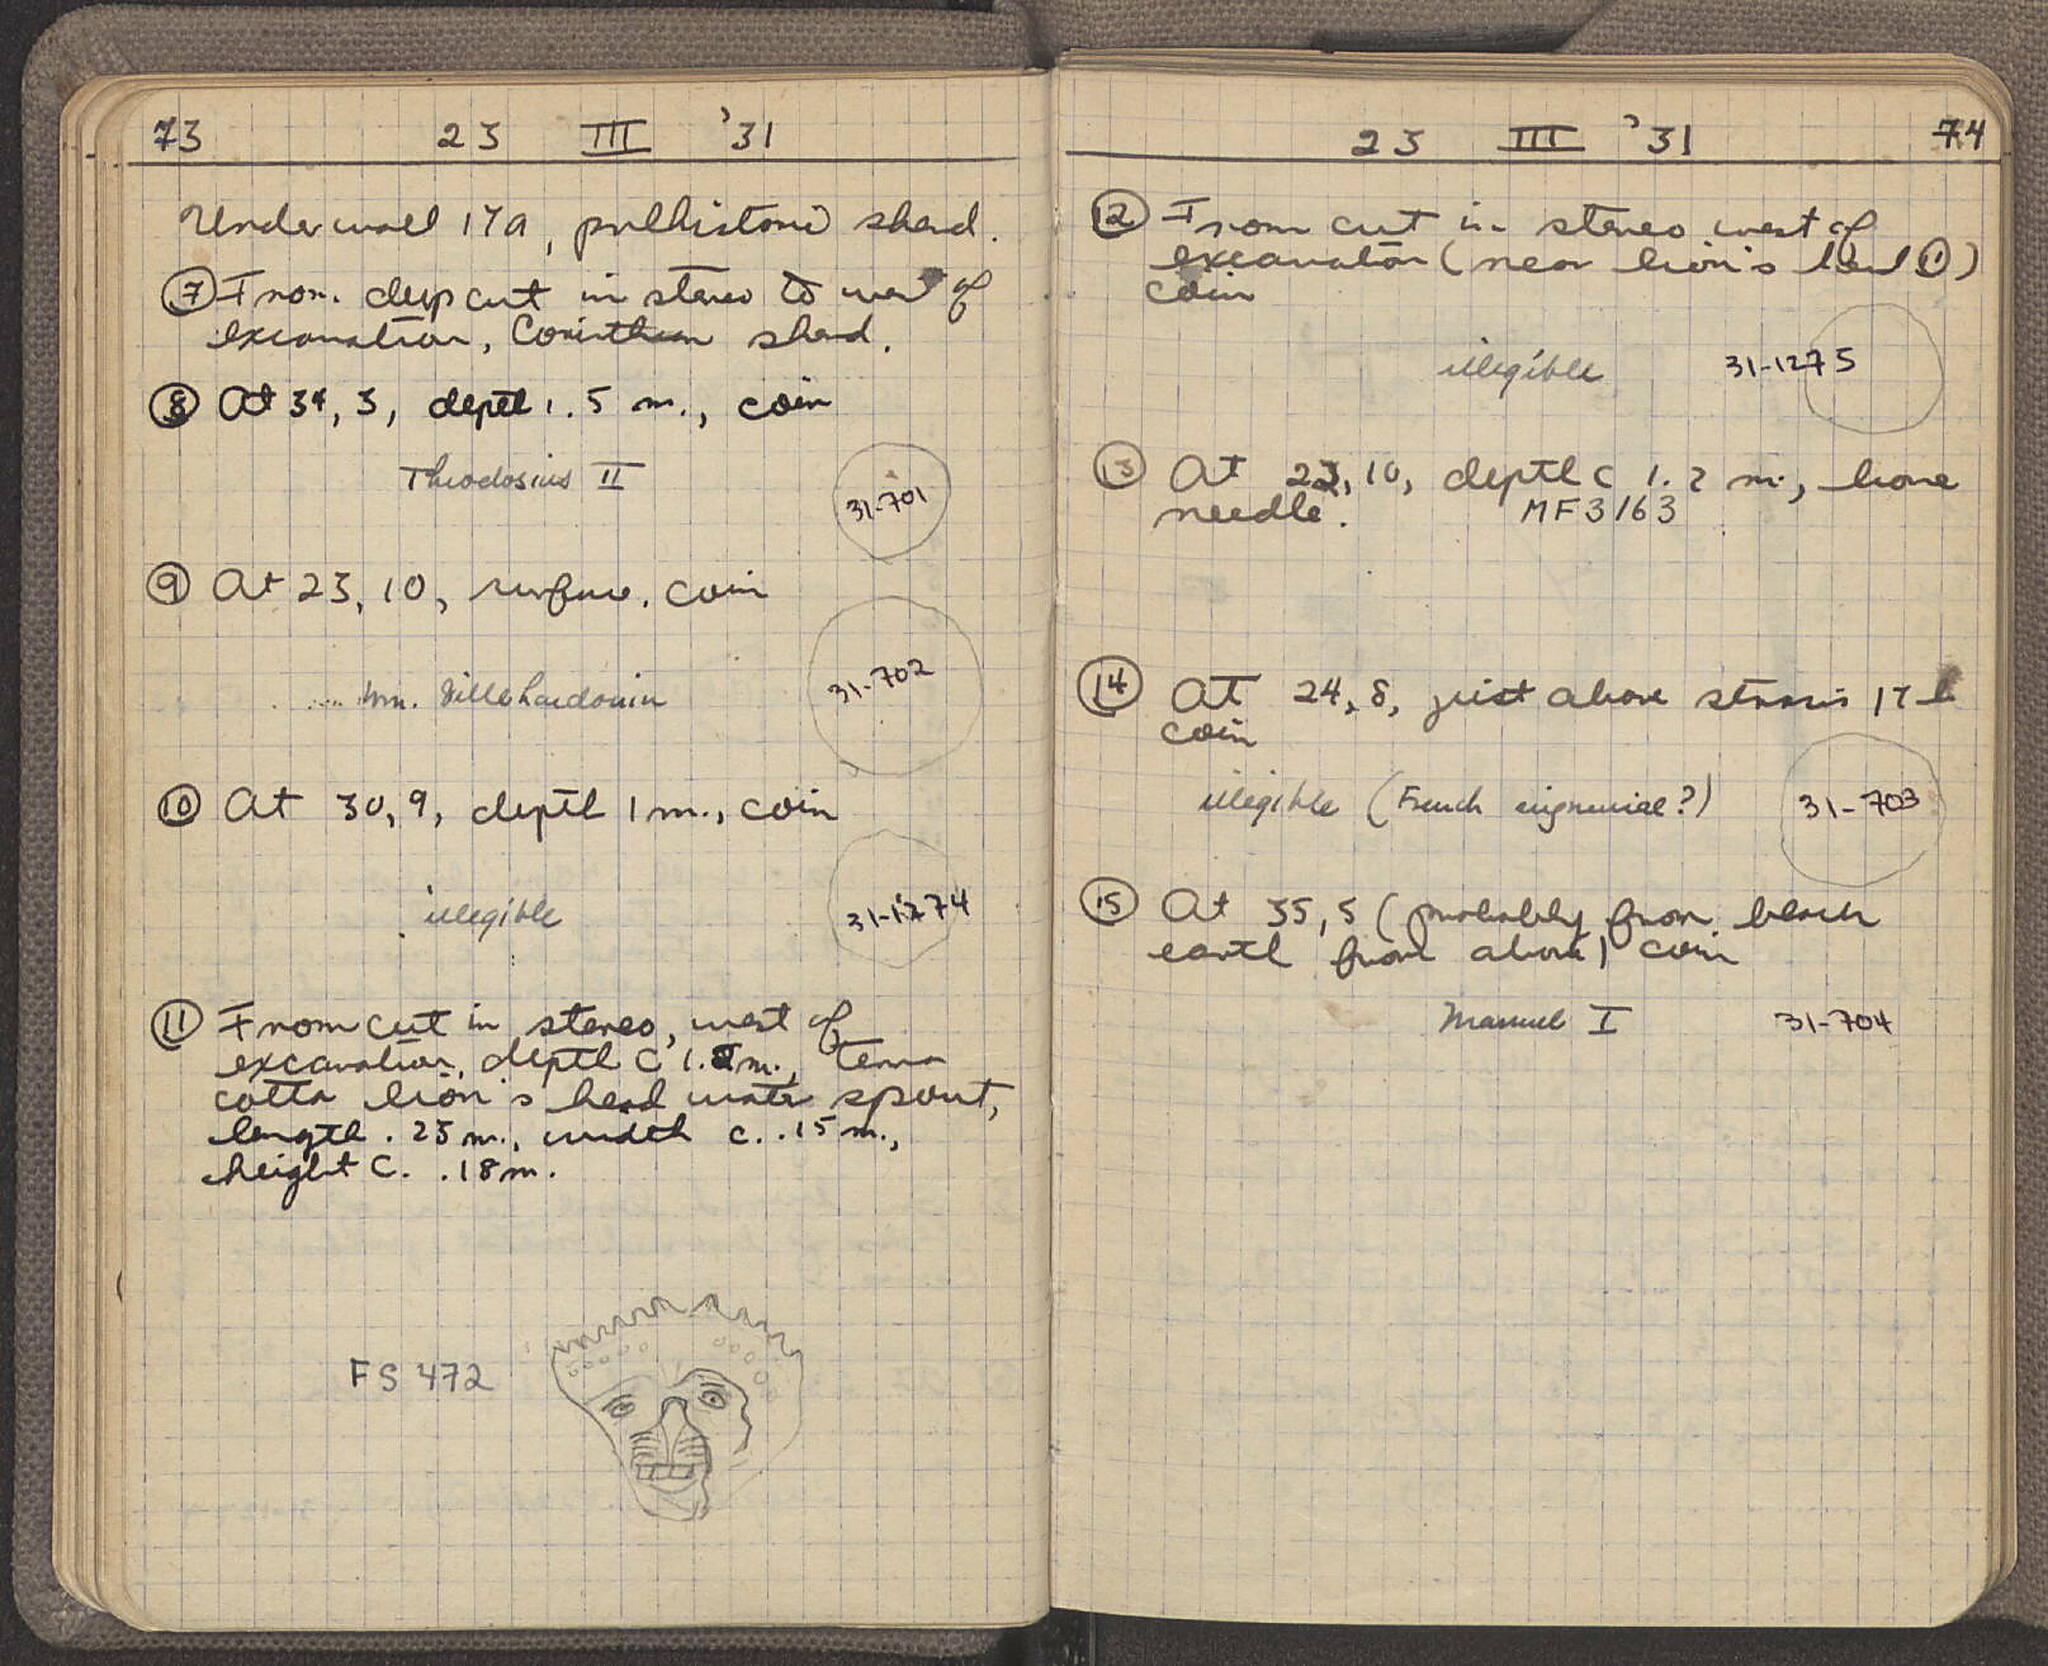 73 23 III '31
Under wall 17a, prehistoric sherd.
7 From deep cut in stereo to west of
excavation, Corinthian sherd.
8 At 34, 3, depth 1.5 m., coin
Theodosius II
31-701
9 At 23, 10, surface, coin
Wm. Villehardouin
31-702
10 At 30, 9, depth 1 m., coin
illegible
31-1274
11 From cut in stereo, west of
excavation, depth c 1. m., terra
cotta lion's head water spout,
length .23 m., width c. .15 m.,
height c. .18 m.
FS 472
23 III '31 74
12 From cut in stereo west of
excavation (near lion's head 11)
coin
illegible 31-1275
13 At 23, 10, depth c 1.2 m., bone
needle. MF 3163
14 At 24, 8, just above stereo 17 b
coin
illegible (French 31-703
15 At 35, 5 (probably from black
earth from above) coin
Manuel I 31-704